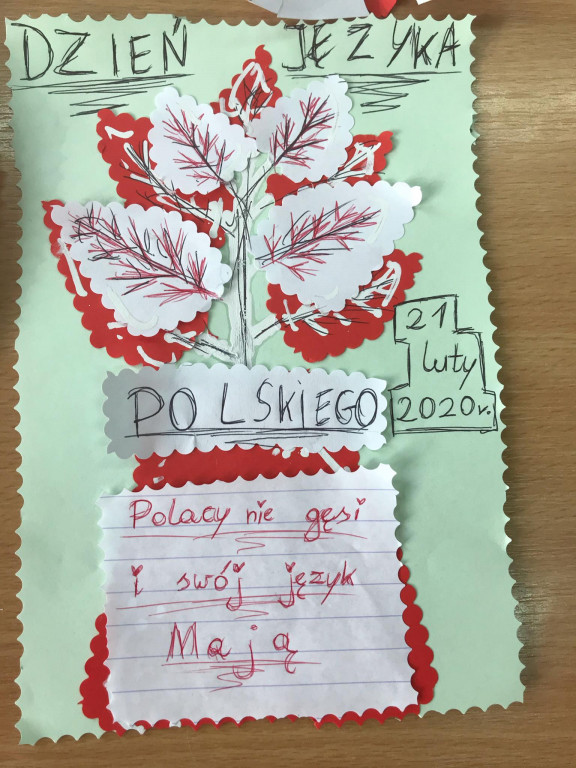 DZIEŃ JĘZYKA
POLSKIEGO
21
luty
2020r.
Polacy nie gęsi
i swój język
Mają